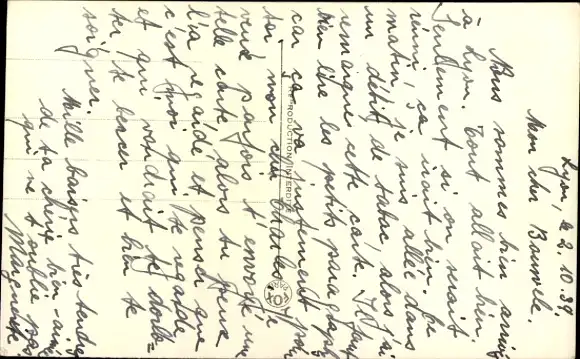 Lyon, le 2.10.39.
Mon cher
Nous sommes bien arrivé
à Lyon. Tout allait bien.
Seulement si on serait
réuni, ça irait bien. Ce
matin, je suis allée dans
un débit de tabac, alors j'ai
remarqué cette carte. Il faut
bien lire les petits
car ça va justement pour
toi mon cher Je
veux parfois t'envoyé une
telle carte alors tu peux
la regardé et penser que
c'est moi qui te regarde
et qui voudrait te dorlo=
ter, te bercer et bien te
soigner.
Mille baisers très tendres
de ta chérie bien-aimée
qui ne t'oublie pas
Marguerite
REPRODUCTION INTERDITE